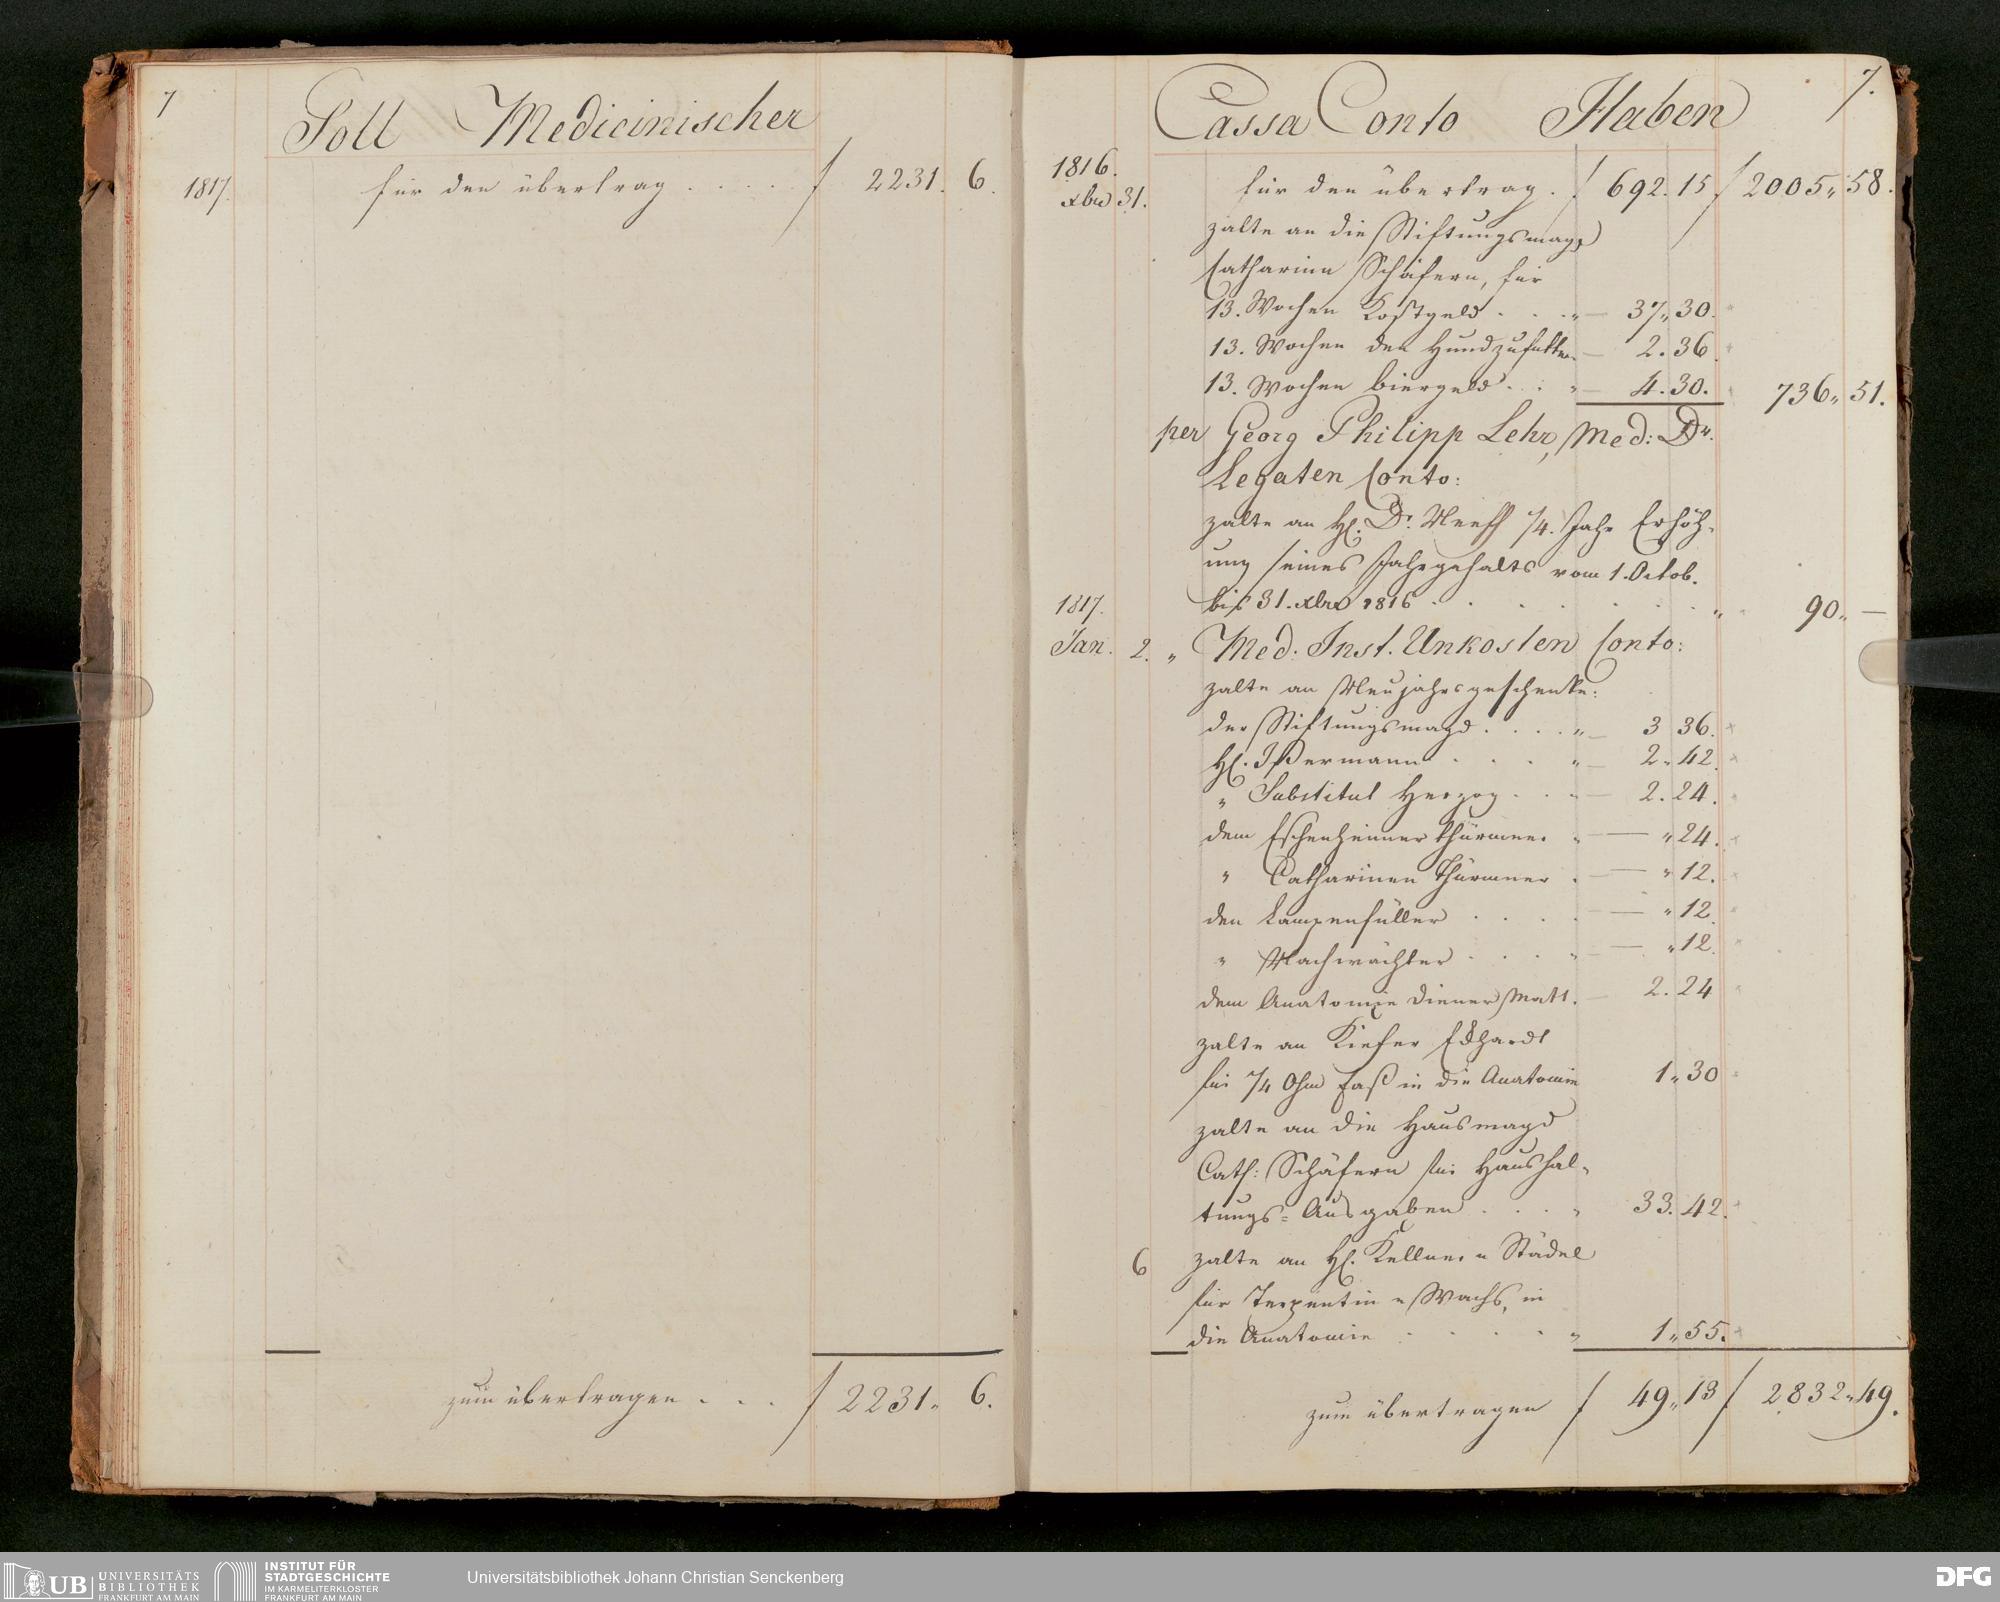 7
Soll Medicinischer
1817. für den übertrag . . . . f 2231. 6.
zum übertragen . . . f 2231. 6.
Cassa Conto Haben 7.
1816.
Xbre 31. für den übertrag . f 692. 15 f 2005,, 58.
zalte an die Stiftungsmagd
Catharina Schäfern, für
13. Wochen Kostgeld . . . " — 37,, 30.
13. Wochen den Hund zu futtern — 2. 36
13. Wochen biergeld . . . " — 4. 30. 736,, 51.
per Georg Philipp Lehr, Med: Dr.
Legaten Conto:
zalte an H. Dr. Neeff 1/4. Jahr Erhöh-
ung seines Jahrgehalts vom 1. Octob.
bis 31. Xbre 1816 . . . . . . . " 90,, —
1817.
Jan. 2. " Med. Inst. Unkosten Conto:
zalte an Neujahrsgeschenke:
der Stiftungsmagd . . . . " — 3 36.
H. Ißermann . . . . " — 2. 42.
" Substitut Herzog . . . — 2. 24.
dem Eschenheimer thürmer . " — " 24.
" Catharinen thürmer . — " 12.
den Lampenfüller . . . . — " 12
" Nachwächter . . . . " — " 12.
dem Anatomie diener Matt. — 2. 24
zalte an Kiefer Eckhardt
für 1/4 Ohm Faß in die Anatomie 1,, 30
zalte an die Hausmagd
Cath: Schäfern für Haushal-
tungs= Ausgaben . . . " 33. 42.
6 zalte an H. Kellner u Städel
für Terpentin u Wachs, in
die Anatomie . . . . . " 1,, 55.
zum übertragen f 49,, 13 f 2832,, 49.
UB UNIVERSITÄTS
BIBLIOTHEK
FRANKFURT AM MAIN
INSTITUT FÜR
STADTGESCHICHTE
IM KARMELITERKLOSTER
FRANKFURT AM MAIN
Universitätsbibliothek Johann Christian Senckenberg
DFG